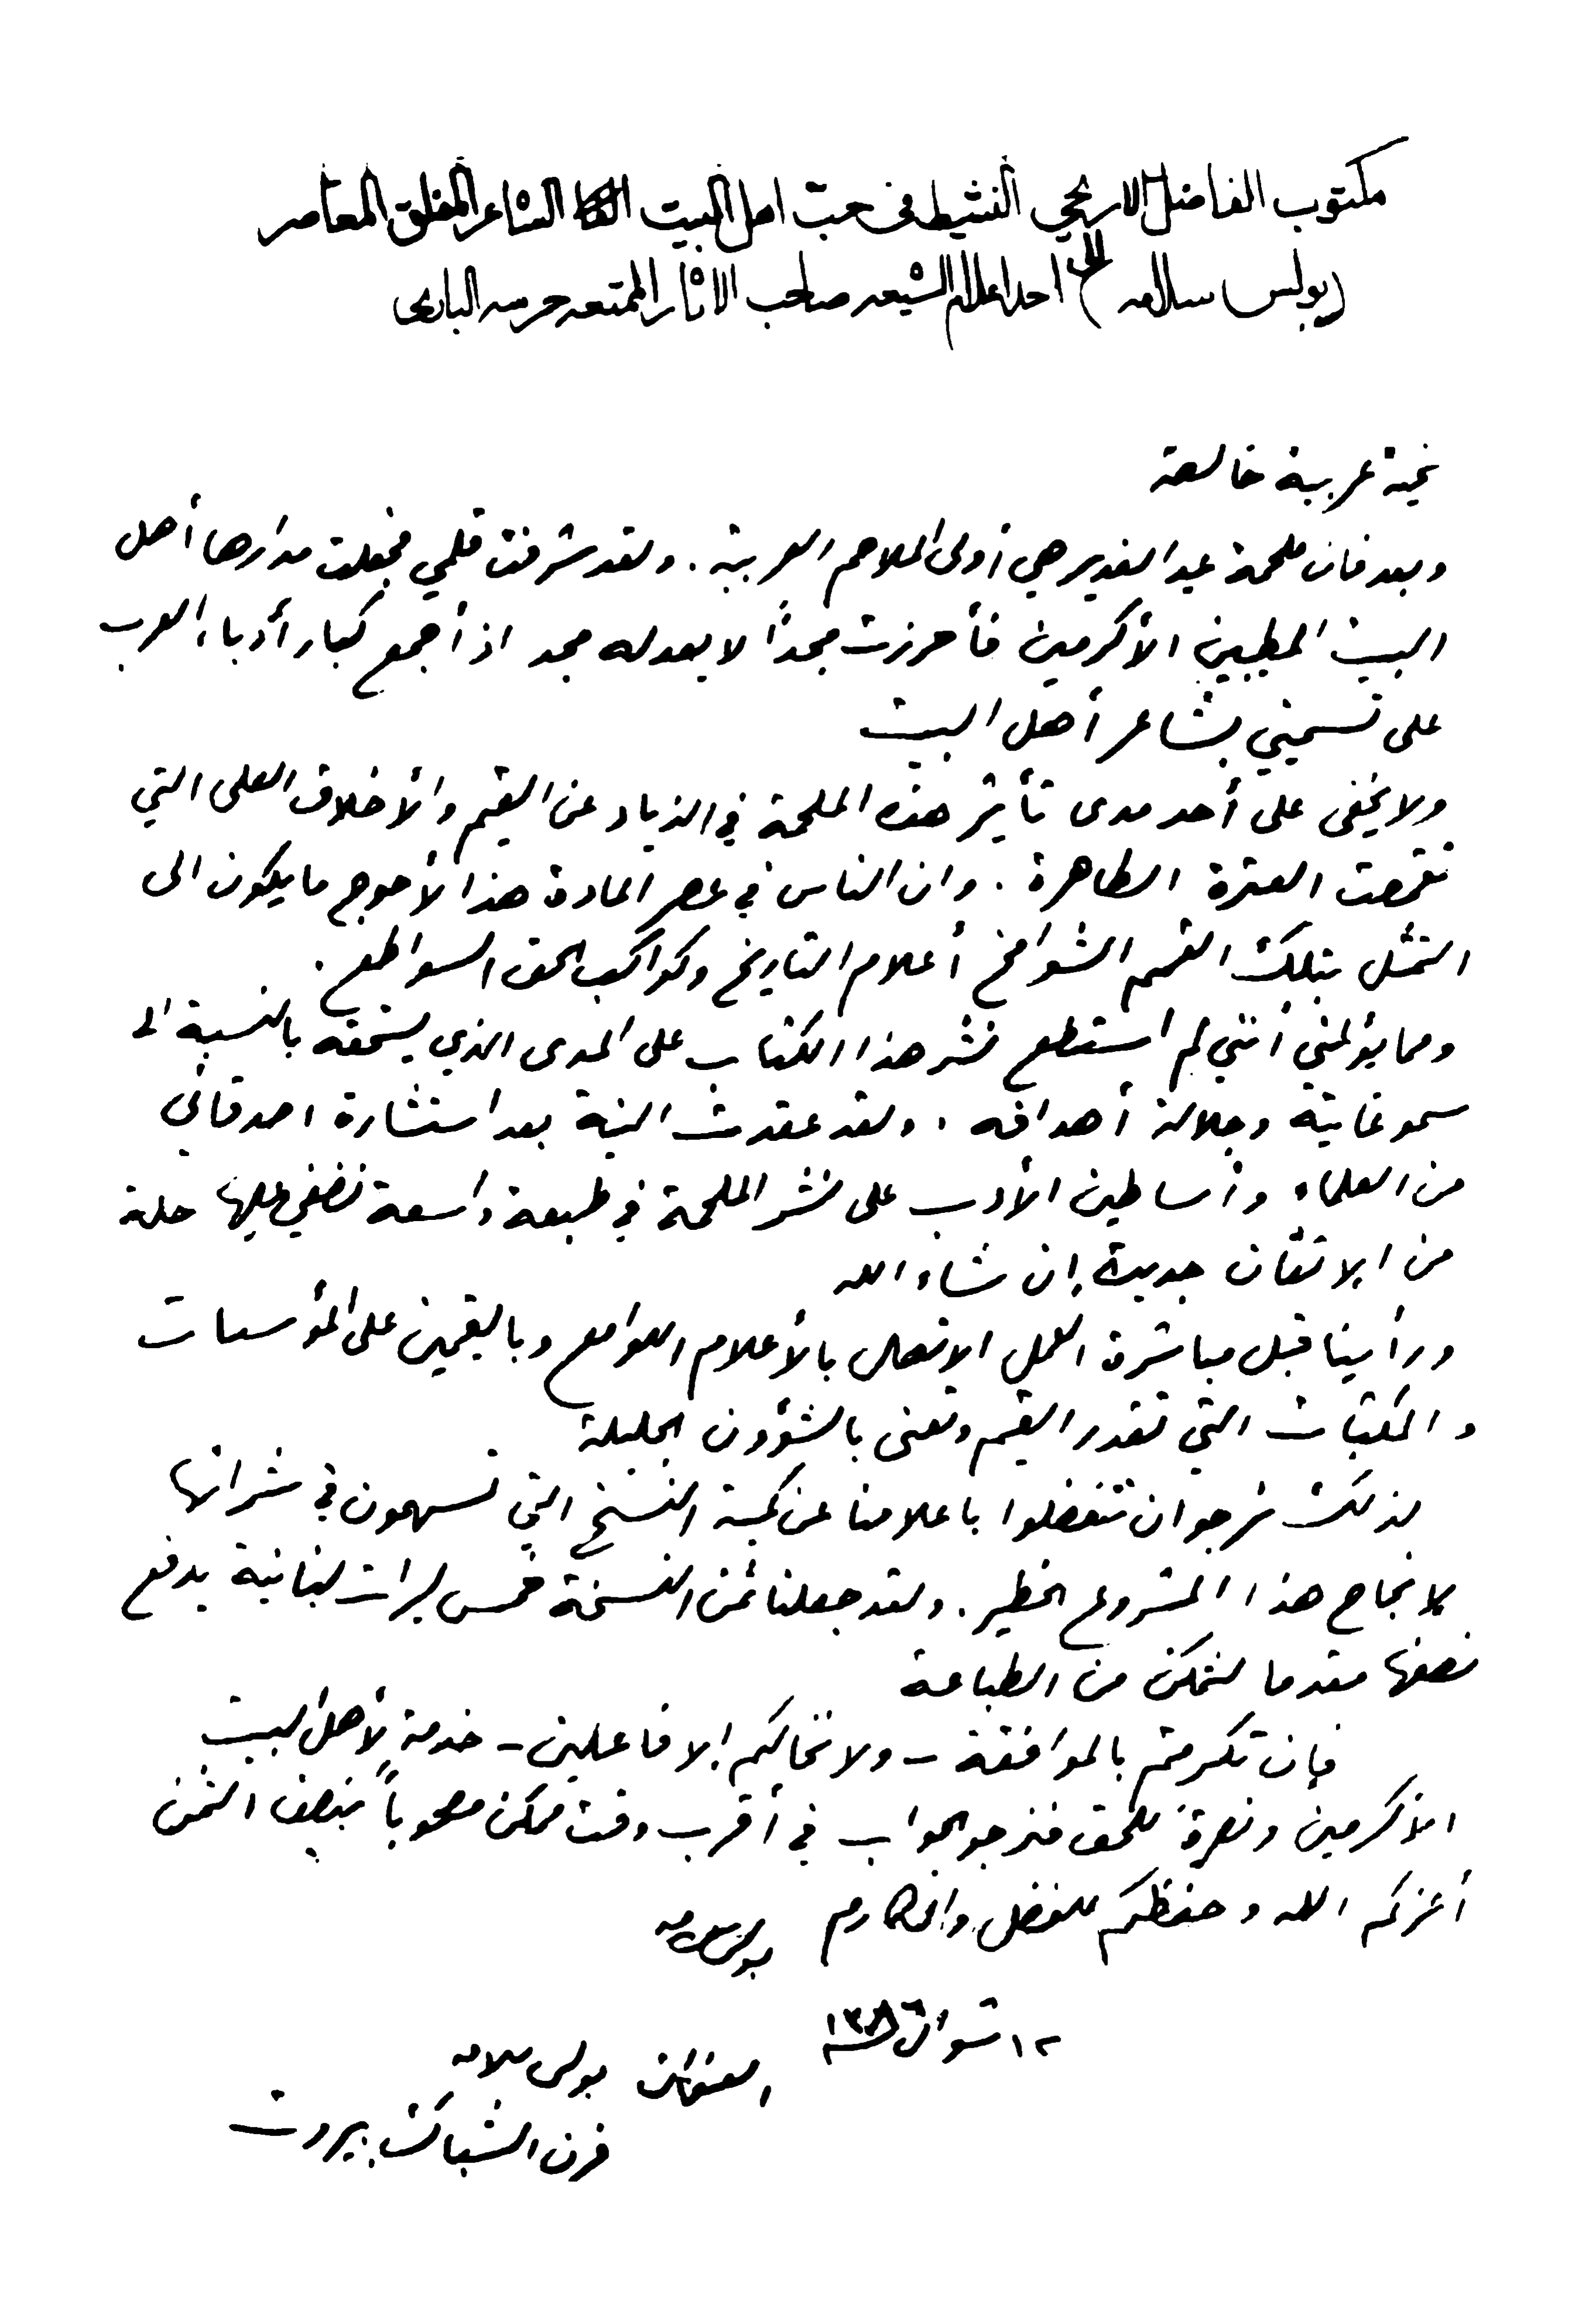 مكتوب الفاضل الاريحي النشيط فى حبّ اهل البيت الشاعر المفلق المعاصر
(بولس سلامه) الى احد اعلام الشيعه صاحب الاثار الممتعه حرسه البارى
تحية عربية خالصة
وبعد فان ملحمة عيد الغدير هي أولى الملاحم العربية . ولقد شرفت قلمي فجعلت مدارها أهل
البيت المطيبين الأكرمين فأحرزت مجداً لا يعدله مجد اذ أجمع كبار أدباء العرب
على تسميتي بشاعر أهل البيت
ولا يخفى على أحد مدى تأثير هذه الملحمة في الذياد عن القيم والأخلاق العلى التي
تقمصت العترة الطاهرة . وان الناس في عصر المادة هذا لأحوج ما يكون الى
التمثل بتلك القمم الشوامخ أعلام التاريخ وكواكب الحق السواطع .
ومما يؤلمني أنني لم استطع نشر هذا الكتاب على المدى الذي يستحقه بالنسبة الى
سمو غايته وجلالة أهدافه . ولقد عقدت النية بعد استشارة اصدقائي
من العلماء وأساطين الأدب على نشر الملحمة في طبعة واسعة نضفي عليها حلة
من الإتقان جديدة إن شاء الله
ورأينا قبل مباشرة العمل الاتصال بالأعلام اللوامع وبالقيمين على المؤسسات
والمكتبات التي تقدر القيم وتعنى بالشؤون الجليلة
لذلك نرجو ان تتفضلوا باعلامنا عن كمية النسخ التي تسهمون في شرائها
لانجاح هذا المشروع الخطير . ولقد جعلنا ثمن النسخة خمس ليرات لبنانية يدفع
نصفها مقدما لنتمكن من الطباعة
فإن تكرمتم بالموافقة - ولا نخالكم إلا فاعلين - خدمة لأهل البيت
الأكرمين ونصرةً للحق فنرجو الجواب في أقرب وقت ممكن مصحوباً بنصف الثمن
أعزكم الله وحفظكم للفضل والمكارم بولس سلامه
١٢ شوال ١٣٨٦
العنوان بولس سلامه
فرن الشباك بيروت